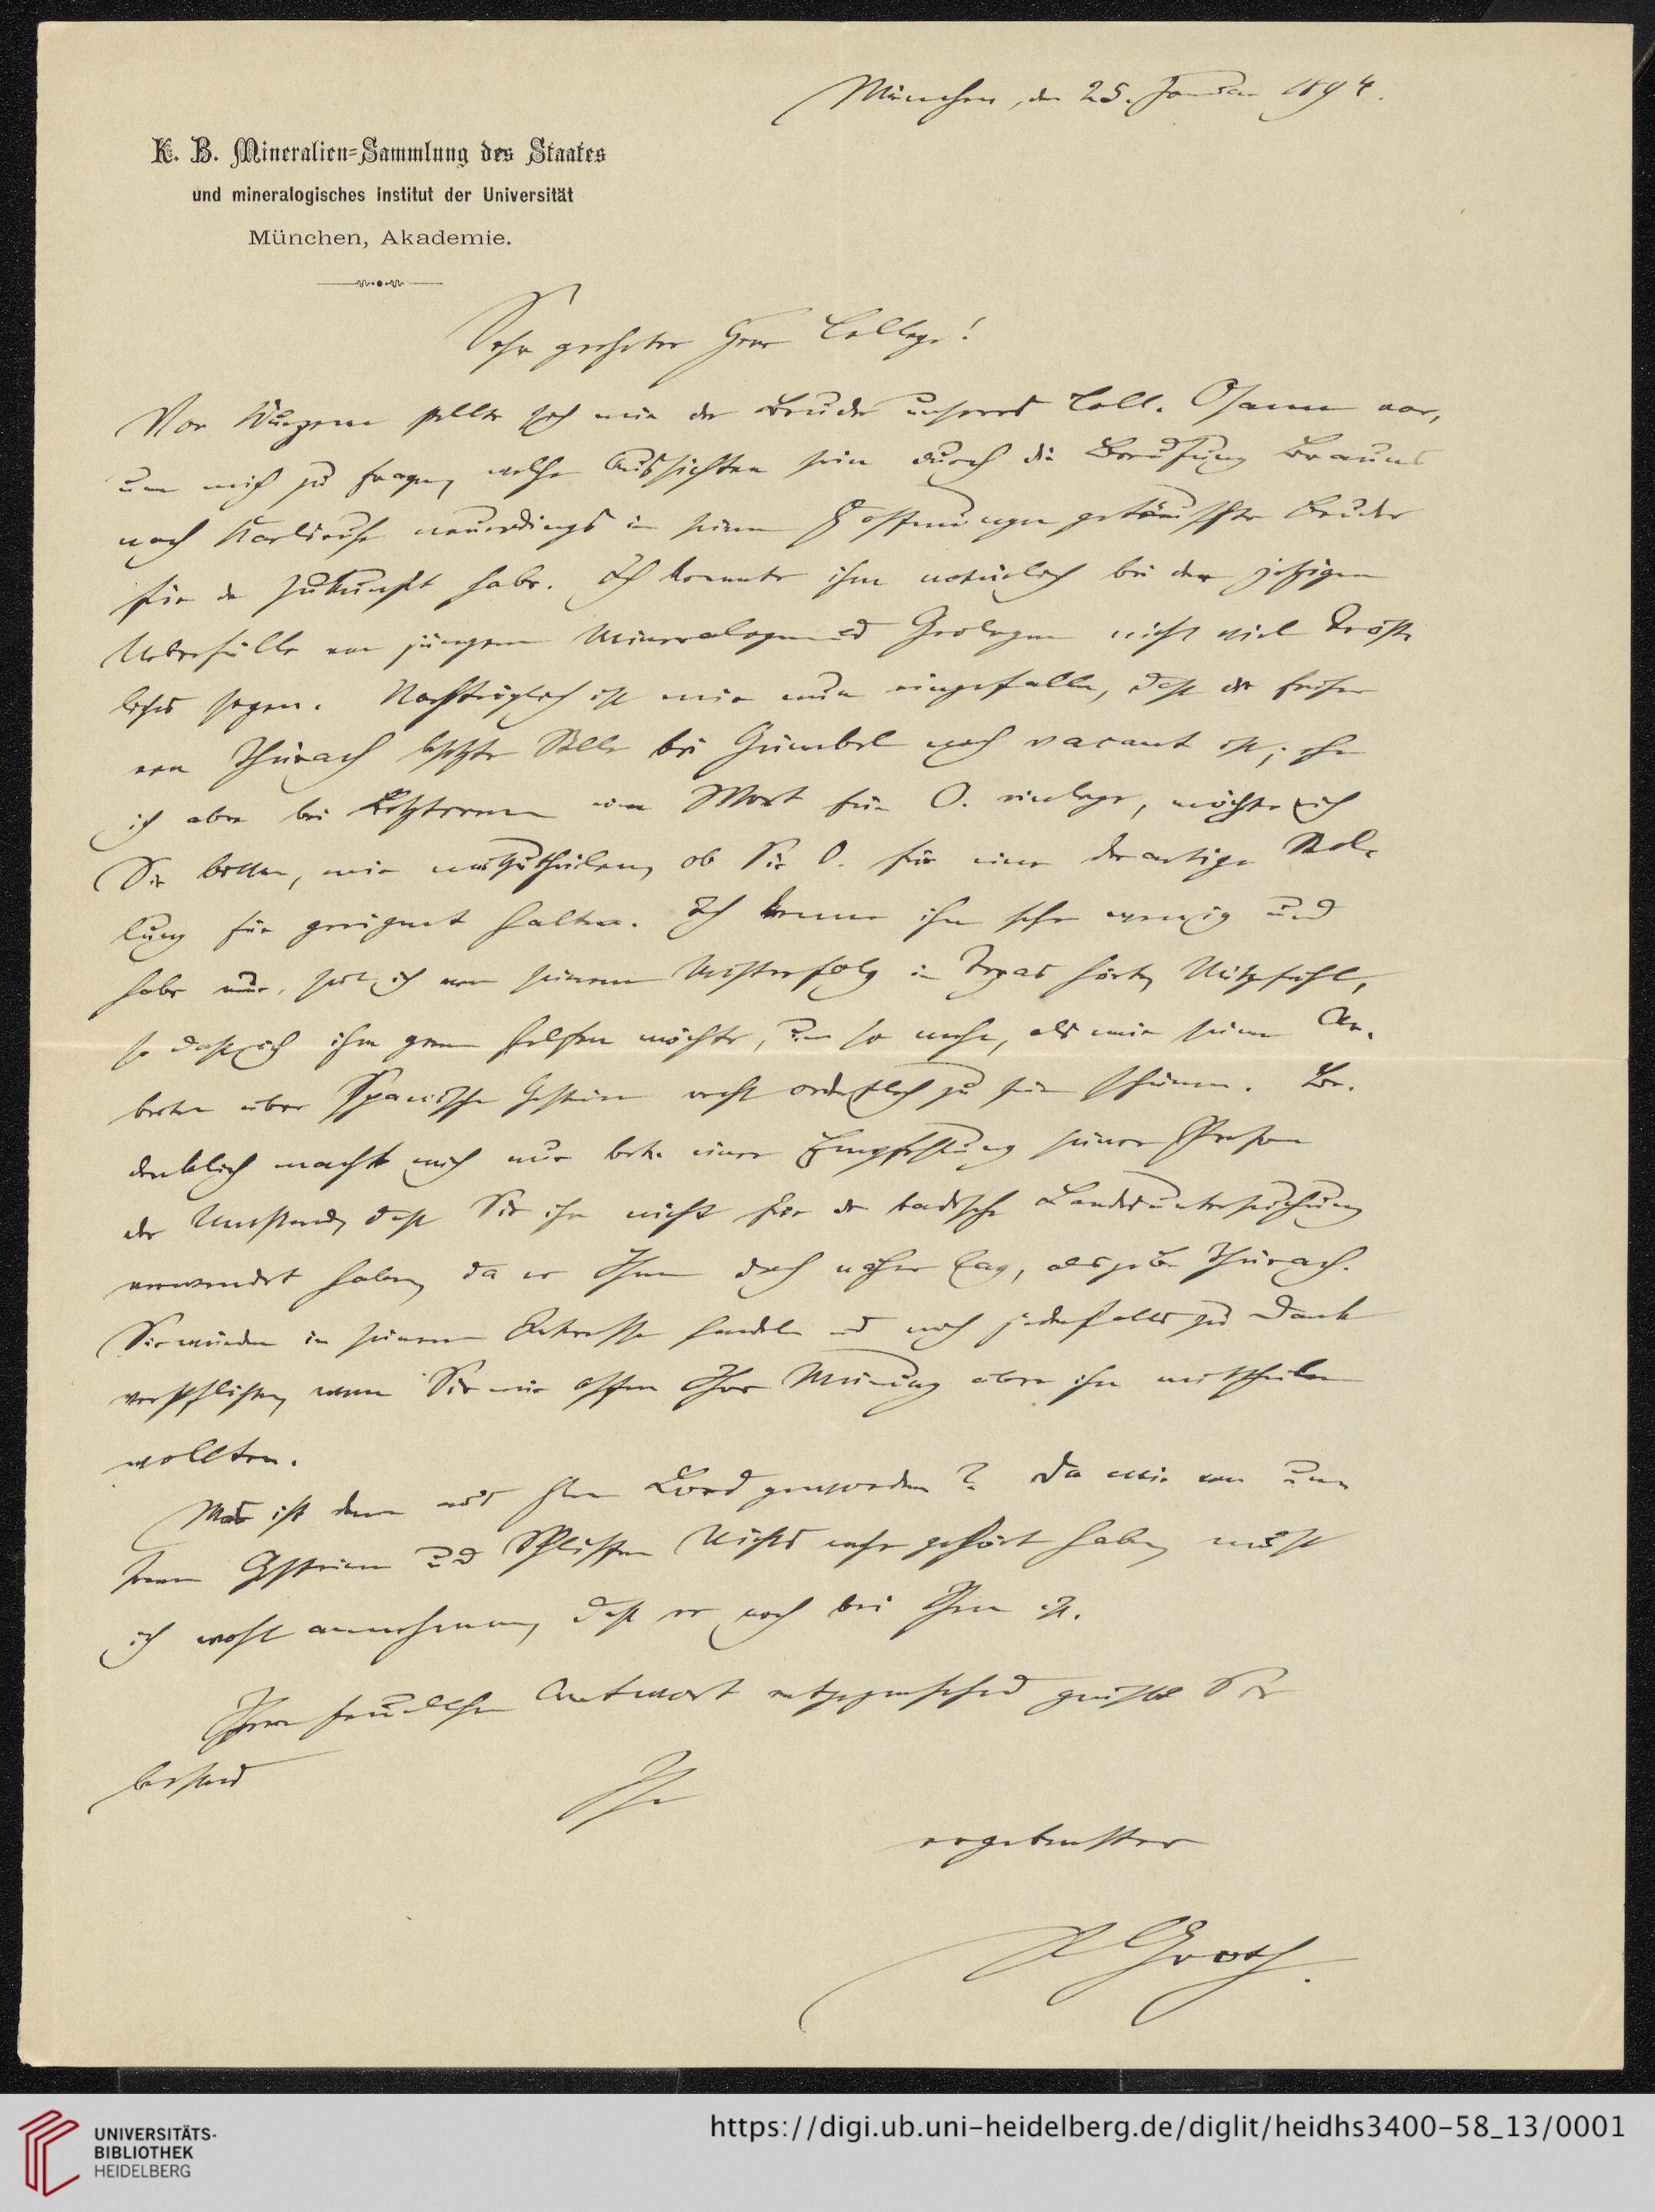 München, den 25. Januar 1894.
K. B. Mineralien-Sammlung des Staates
und mineralogisches Institut der Universität
München, Akademie.
Sehr geehrter Herr College!
Vor Kurzem stellte sich mir der Bruder unseres Coll. Osann vor,
um mich zu fragen, welche Aussichten sein durch die Berufung Brauns
nach Karlsruhe neuerdings in seinen Hoffnungen getäuschter Bruder
für die Zukunft habe. Ich konnte ihm natürlich bei der jetzigen
Ueberfülle von jüngern Mineralogen und Geologen nicht viel Tröst-
liches sagen. Nachträglich ist mir nun eingefallen, dass die früher
von Thürach besetzte Stelle bei Gümbel noch vacant ist; ehe
ich aber bei Letzterem ein Wort für O. einlege, möchte ich
Sie bitten, mir mitzutheilen, ob Sie O. für eine derartige Stel-
lung für geeignet halten. Ich kenne ihn sehr wenig und
habe nur, seit ich von seinem Misserfolg in Texas hörte, Mitgefühl,
so dass ich ihm gern helfen möchte, um so mehr, als mir seine Ar-
beiten über Spanische Gesteine recht ordentlich zu sein scheinen. Be-
denklich macht mich nur betr. einer Empfehlung seiner Person
der Umstand, dass Sie ihn nicht für die badische Landesuntersuchung
verwendet haben, da er Ihnen doch näher lag, als z. B. Thürach.
Sie würden in seinem Interesse handeln und mich jedenfalls zu Dank
verpflichten, wenn Sie mir offen Ihre Meinung über ihn mittheilen
wollten.
Was ist denn aus Hrn Lord geworden? Da wir von un-
seren Gesteinen und Schliffen Nichts mehr gehört haben, muss
ich wohl annehmen, dass er noch bei Ihnen ist.
Ihrer freundlichen Antwort entgegensehend grüsst Sie
bestens
Ihr
ergebenster
P Groth.
UNIVERSITÄTS-
BIBLIOTHEK
HEIDELBERG
https://digi.ub.uni-heidelberg.de/diglit/heidhs3400-58_13/0001